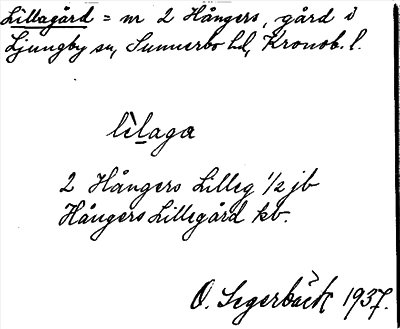 Lillagård = nr 2 Hångers, gård i
Ljungby sn, Sunnerbo hd, Kronob. l.
lìlaga
2 Hångers Lilleg 1/2 jb
Hångers Lillegård kb.
O. Segerbäck 1937.